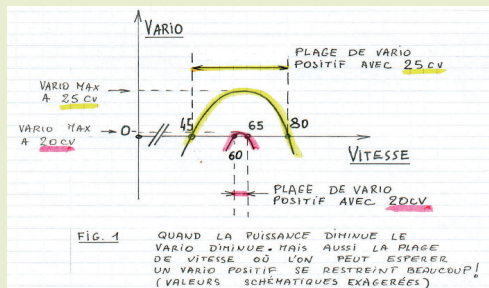 VARIO
PLAGE DE VARIO
POSITIF AVEC 25 CV
VARIO MAX
A 25 CV
VARIO MAX
A 20CV
0
45
65
80
60
VITESSE
PLAGE DE VARIO
POSITIF AVEC 20CV
FIG. 1
QUAND LA PUISSANCE DIMINUE LE
VARIO DIMINUE. MAIS AUSSI LA PLAGE
DE VITESSE OÙ L'ON PEUT ESPERER
UN VARIO POSITIF SE RESTREINT BEAUCOUP!
(VALEURS SCHÉMATIQUES EXAGERÉES)